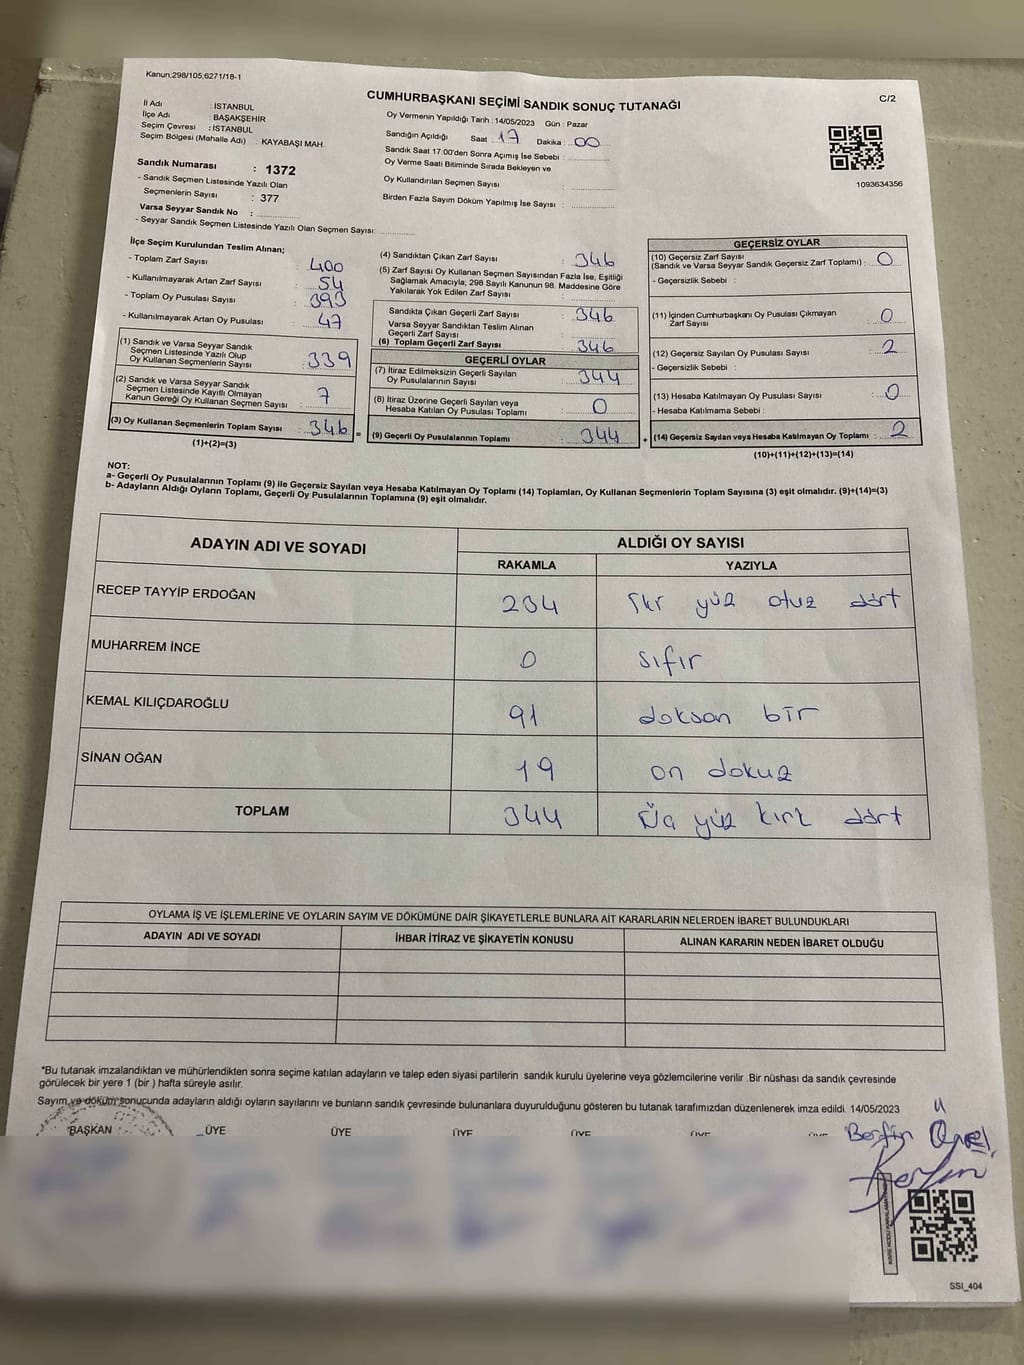 Kanun:298/105,6271/18-1
CUMHURBAŞKANI SEÇİMİ SANDIK SONUÇ TUTANAĞI
C/2
İl Adı : İSTANBUL
İlçe Adı : BAŞAKŞEHİR
Seçim Çevresi : İSTANBUL
Seçim Bölgesi (Mahalle Adı) : KAYABAŞI MAH.
Sandık Numarası : 1372
- Sandık Seçmen Listesinde Yazılı Olan
Seçmenlerin Sayısı : 377
Varsa Seyyar Sandık No :
- Seyyar Sandık Seçmen Listesinde Yazılı Olan Seçmen Sayısı:
Oy Vermenin Yapıldığı Tarih : 14/05/2023 Gün : Pazar
Sandığın Açıldığı Saat : 17 Dakika : 00
Sandık Saat 17:00'den Sonra Açılmış İse Sebebi :
Oy Verme Saati Bitiminde Sırada Bekleyen ve
Oy Kullandırılan Seçmen Sayısı :
Birden Fazla Sayım Döküm Yapılmış İse Sayısı :
1093634356
İlçe Seçim Kurulundan Teslim Alınan;
- Toplam Zarf Sayısı : 400
- Kullanılmayarak Artan Zarf Sayısı : 54
- Toplam Oy Pusulası Sayısı : 393
- Kullanılmayarak Artan Oy Pusulası : 47
(1) Sandık ve Varsa Seyyar Sandık
Seçmen Listesinde Yazılı Olup
Oy Kullanan Seçmenlerin Sayısı : 339
(2) Sandık ve Varsa Seyyar Sandık
Seçmen Listesinde Kayıtlı Olmayan
Kanun Gereği Oy Kullanan Seçmen Sayısı : 7
(3) Oy Kullanan Seçmenlerin Toplam Sayısı : 346 =
(1)+(2)=(3)
(4) Sandıktan Çıkan Zarf Sayısı : 346
(5) Zarf Sayısı Oy Kullanan Seçmen Sayısından Fazla İse, Eşitliği
Sağlamak Amacıyla; 298 Sayılı Kanunun 98. Maddesine Göre
Yakılarak Yok Edilen Zarf Sayısı :
Sandıkta Çıkan Geçerli Zarf Sayısı : 346
Varsa Seyyar Sandıktan Teslim Alınan
Geçerli Zarf Sayısı :
(6) Toplam Geçerli Zarf Sayısı : 346
GEÇERLİ OYLAR
(7) İtiraz Edilmeksizin Geçerli Sayılan
Oy Pusulalarının Sayısı : 344
(8) İtiraz Üzerine Geçerli Sayılan veya
Hesaba Katılan Oy Pusulası Toplamı : 0
(9) Geçerli Oy Pusulalarının Toplamı : 344 +
GEÇERSİZ OYLAR
(10) Geçersiz Zarf Sayısı
(Sandık ve Varsa Seyyar Sandık Geçersiz Zarf Toplamı) : 0
- Geçersizlik Sebebi :
(11) İçinden Cumhurbaşkanı Oy Pusulası Çıkmayan
Zarf Sayısı : 0
(12) Geçersiz Sayılan Oy Pusulası Sayısı : 2
- Geçersizlik Sebebi :
(13) Hesaba Katılmayan Oy Pusulası Sayısı : 0
- Hesaba Katılmama Sebebi :
(14) Geçersiz Sayılan veya Hesaba Katılmayan Oy Toplamı : 2
(10)+(11)+(12)+(13)=(14)
NOT:
a- Geçerli Oy Pusulalarının Toplamı (9) ile Geçersiz Sayılan veya Hesaba Katılmayan Oy Toplamı (14) Toplamları, Oy Kullanan Seçmenlerin Toplam Sayısına (3) eşit olmalıdır. (9)+(14)=(3)
b- Adayların Aldığı Oyların Toplamı, Geçerli Oy Pusulalarının Toplamına (9) eşit olmalıdır.
ADAYIN ADI VE SOYADI ALDIĞI OY SAYISI
RAKAMLA YAZIYLA
RECEP TAYYİP ERDOĞAN 234 İki yüz otuz dört
MUHARREM İNCE 0 sıfır
KEMAL KILIÇDAROĞLU 91 doksan bir
SİNAN OĞAN 19 on dokuz
TOPLAM 344 Üç yüz kırk dört
OYLAMA İŞ VE İŞLEMLERİNE VE OYLARIN SAYIM VE DÖKÜMÜNE DAİR ŞİKAYETLERLE BUNLARA AİT KARARLARIN NELERDEN İBARET BULUNDUKLARI
ADAYIN ADI VE SOYADI İHBAR İTİRAZ VE ŞİKAYETİN KONUSU ALINAN KARARIN NEDEN İBARET OLDUĞU
*Bu tutanak imzalandıktan ve mühürlendikten sonra seçime katılan adayların ve talep eden siyasi partilerin sandık kurulu üyelerine veya gözlemcilerine verilir .Bir nüshası da sandık çevresinde
görülecek bir yere 1 (bir ) hafta süreyle asılır.
Sayım ve döküm sonucunda adayların aldığı oyların sayılarını ve bunların sandık çevresinde bulunanlara duyurulduğunu gösteren bu tutanak tarafımızdan düzenlenerek imza edildi. 14/05/2023
BAŞKAN ÜYE ÜYE ÜYE ÜYE ÜYE ÜYE
Berfin
SSI_404